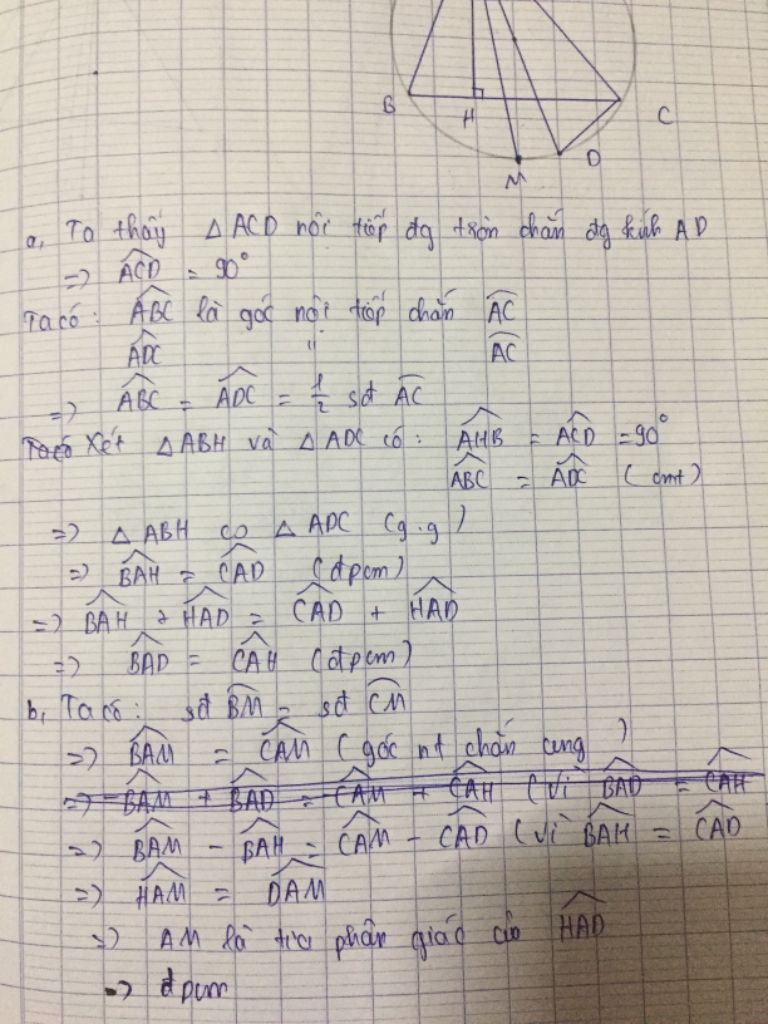 B
H
C
D
M
a, Ta thấy △ACD nội tiếp đg tròn chắn đg kính AD
=> \widehat{ACD} = 90°
Ta có: \widehat{ABC} là góc nội tiếp chắn \overparen{AC}
\widehat{ADC} " \overparen{AC}
=> \widehat{ABC} = \widehat{ADC} = 1/2 sđ \overparen{AC}
Ta có Xét △ABH và △ADC có: \widehat{AHB} = \widehat{ACD} = 90°
\widehat{ABC} = \widehat{ADC} (cmt)
=> △ABH ∽ △ADC (g.g)
=> \widehat{BAH} = \widehat{CAD} (đpcm)
=> \widehat{BAH} + \widehat{HAD} = \widehat{CAD} + \widehat{HAD}
=> \widehat{BAD} = \widehat{CAH} (đpcm)
b, Ta có: sđ \overparen{BM} = sđ \overparen{CM}
=> \widehat{BAM} = \widehat{CAM} (góc nt chắn cung)
=> \widehat{BAM} + \widehat{BAD} = \widehat{CAM} + \widehat{CAH} (Vì \widehat{BAD} = \widehat{CAH}
=> \widehat{BAM} - \widehat{BAH} = \widehat{CAM} - \widehat{CAD} (Vì \widehat{BAH} = \widehat{CAD}
=> \widehat{HAM} = \widehat{DAM}
=> AM là tia phân giác của \widehat{HAD}
=> đpcm